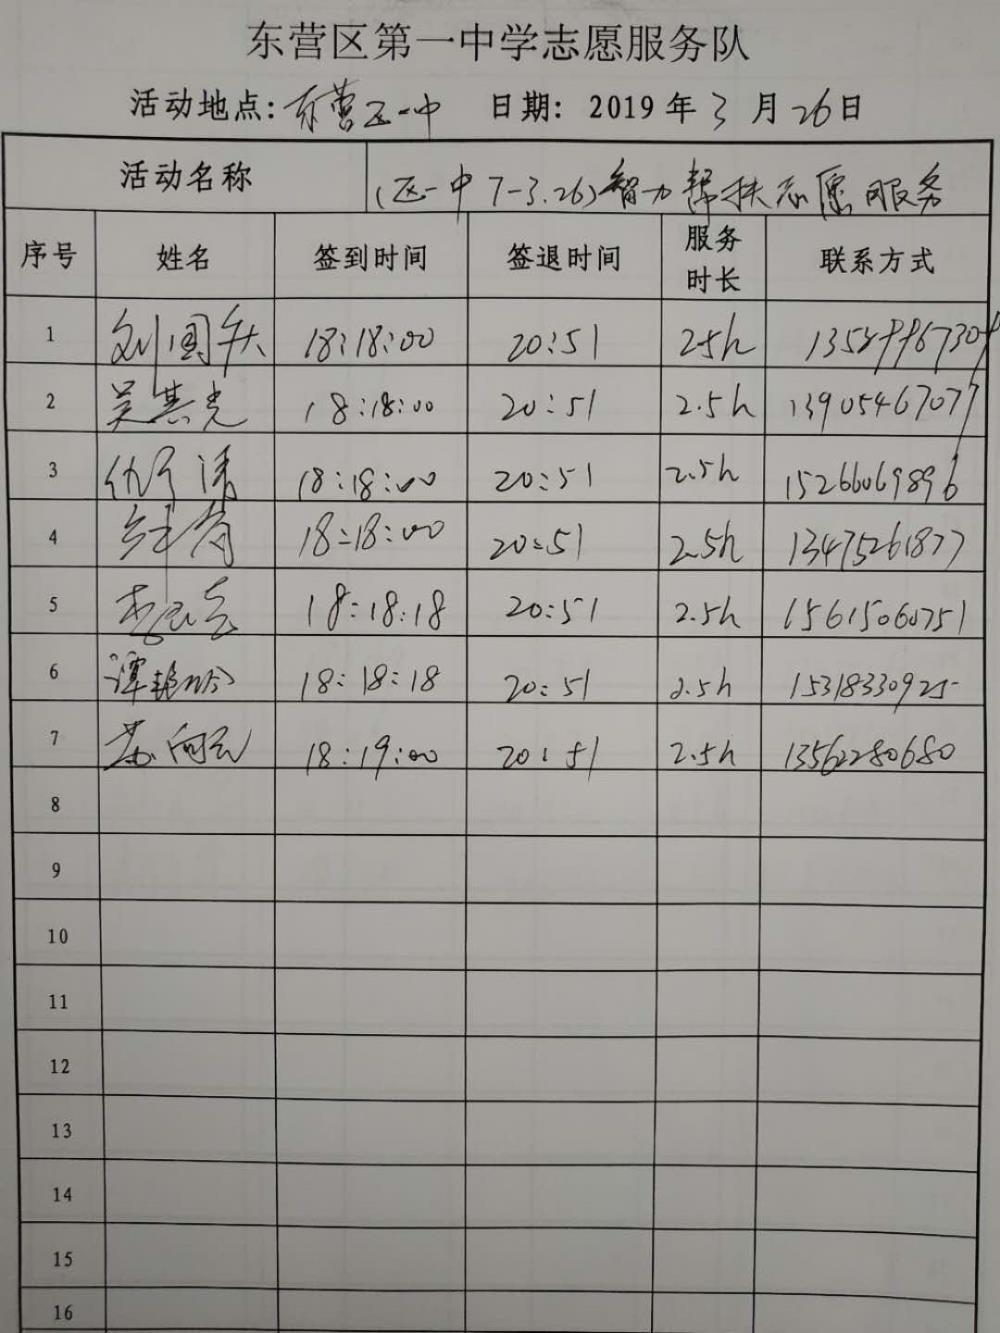 东营区第一中学志愿服务队
活动地点：东营区一中 日期：2019年3月26日
活动名称 (区一中7-3.26)智力帮扶志愿服务
序号 姓名 签到时间 签退时间 服务时长 联系方式
1 刘国庆 18:18:00 20:51 2.5h
2 吴其光 18:18:00 20:51 2.5h 13905467077
3 18:18:00 20:51 2.5h 15266069896
4 18:18:00 20:51 2.5h 13475261877
5 18:18:18 20:51 2.5h 15615060751
6 谭艳玲 18:18:18 20:51 2.5h 15318330925
7 苏向云 18:19:00 20:51 2.5h 13562280680
8
9
10
11
12
13
14
15
16